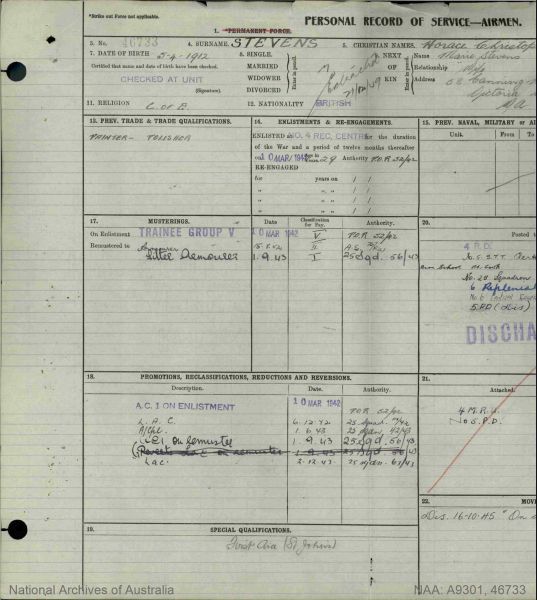 *Strike out Force not applicable.
PERSONAL RECORD OF SERVICE—AIRMEN.
1. *PERMANENT FORCE.
3. No. 46733
4. SURNAME STEVENS
5. CHRISTIAN NAMES Horace Christop
7. DATE OF BIRTH 5-4-1912
Certified that name and date of birth have been checked.
CHECKED AT UNIT
(Signature)
8. SINGLE
MARRIED
WIDOWER
DIVORCED
9. NEXT OF KIN
Name Marie Stevens
Relationship Wife
Address 68 Canning
Victoria
WA
11. RELIGION C of E.
12. NATIONALITY BRITISH
13. PREV. TRADE & TRADE QUALIFICATIONS.
PAINTER - POLISHER
14. ENLISTMENTS & RE-ENGAGEMENTS.
ENLISTED No. 4 REC. CENTRE for the duration
of the War and a period of twelve months thereafter
on 10 MAR 1942 Age in Years 29 Authority P.O.R 52/42
RE-ENGAGED
for years on / /
15. PREV. NAVAL, MILITARY or
Unit. From To
17. MUSTERINGS. Date Classification for Pay. Authority.
On Enlistment TRAINEE GROUP V 10 MAR 1942 V P.O.R 52/42
Remustered to Armourer II
Fitter Armourer 1.9.43 I 25 Sqd. 56/43
20.
Posted
4 R.D.
No. 25 Squadron
DISCHA
18. PROMOTIONS, RECLASSIFICATIONS, REDUCTIONS AND REVERSIONS.
Description. Date. Authority.
A.C. 1 ON ENLISTMENT 10 MAR 1942 P.O.R 52/42
L. A. C. 6.12.42
A/Cpl. 1.6.43
AC1 on remuster 1.9.43 25 Sqd 56/43
Reverts LAC on remuster 1.9.43 25 Sqd 56/43
LAC. 2.12.43
21.
Attached.
4 M.R.U.
22. MOVE
Dis. 16-10-45 "On
19. SPECIAL QUALIFICATIONS.
First Aid (St Johns)
National Archives of Australia
NAA: A9301, 46733